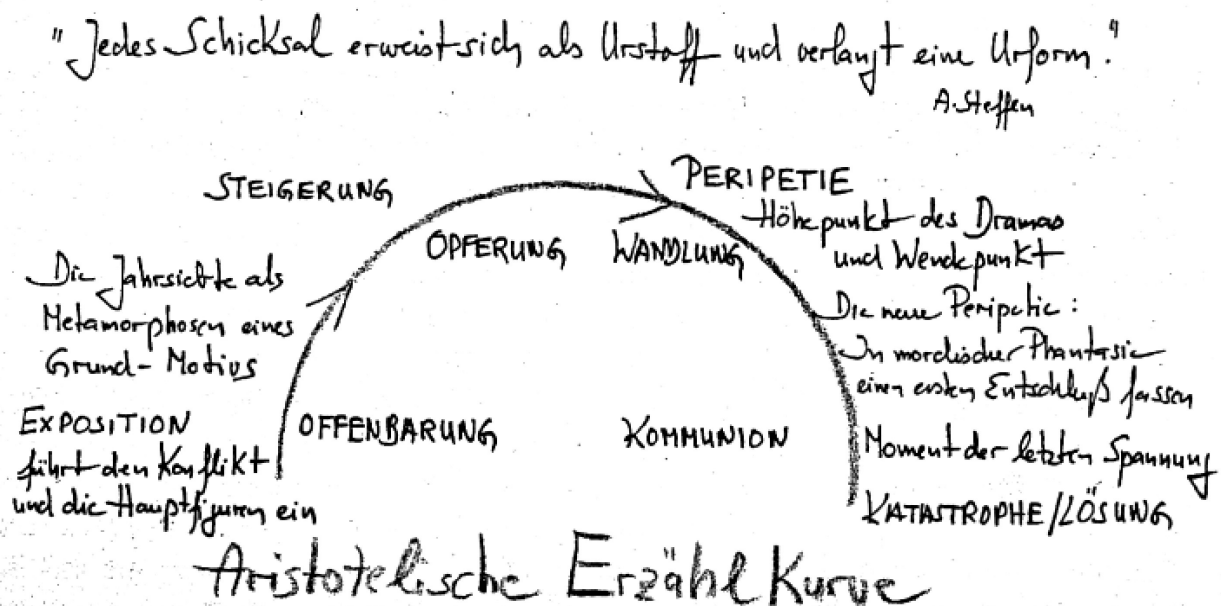 "Jedes Schicksal erweist sich als Urstoff und verlangt eine Urform."
A. Steffen
STEIGERUNG
PERIPETIE
Höhepunkt des Dramas
und Wendepunkt
OPFERUNG
WANDLUNG
Die Jahrsiebte als
Metamorphosen eines
Grund-Motivs
Die neue Peripetie:
In moralischer Phantasie
einen ersten Entschluß fassen
EXPOSITION
führt den Konflikt
und die Hauptfiguren ein
OFFENBARUNG
KOMMUNION
Moment der letzten Spannung
KATASTROPHE/LÖSUNG
Aristotelische Erzähl Kurve